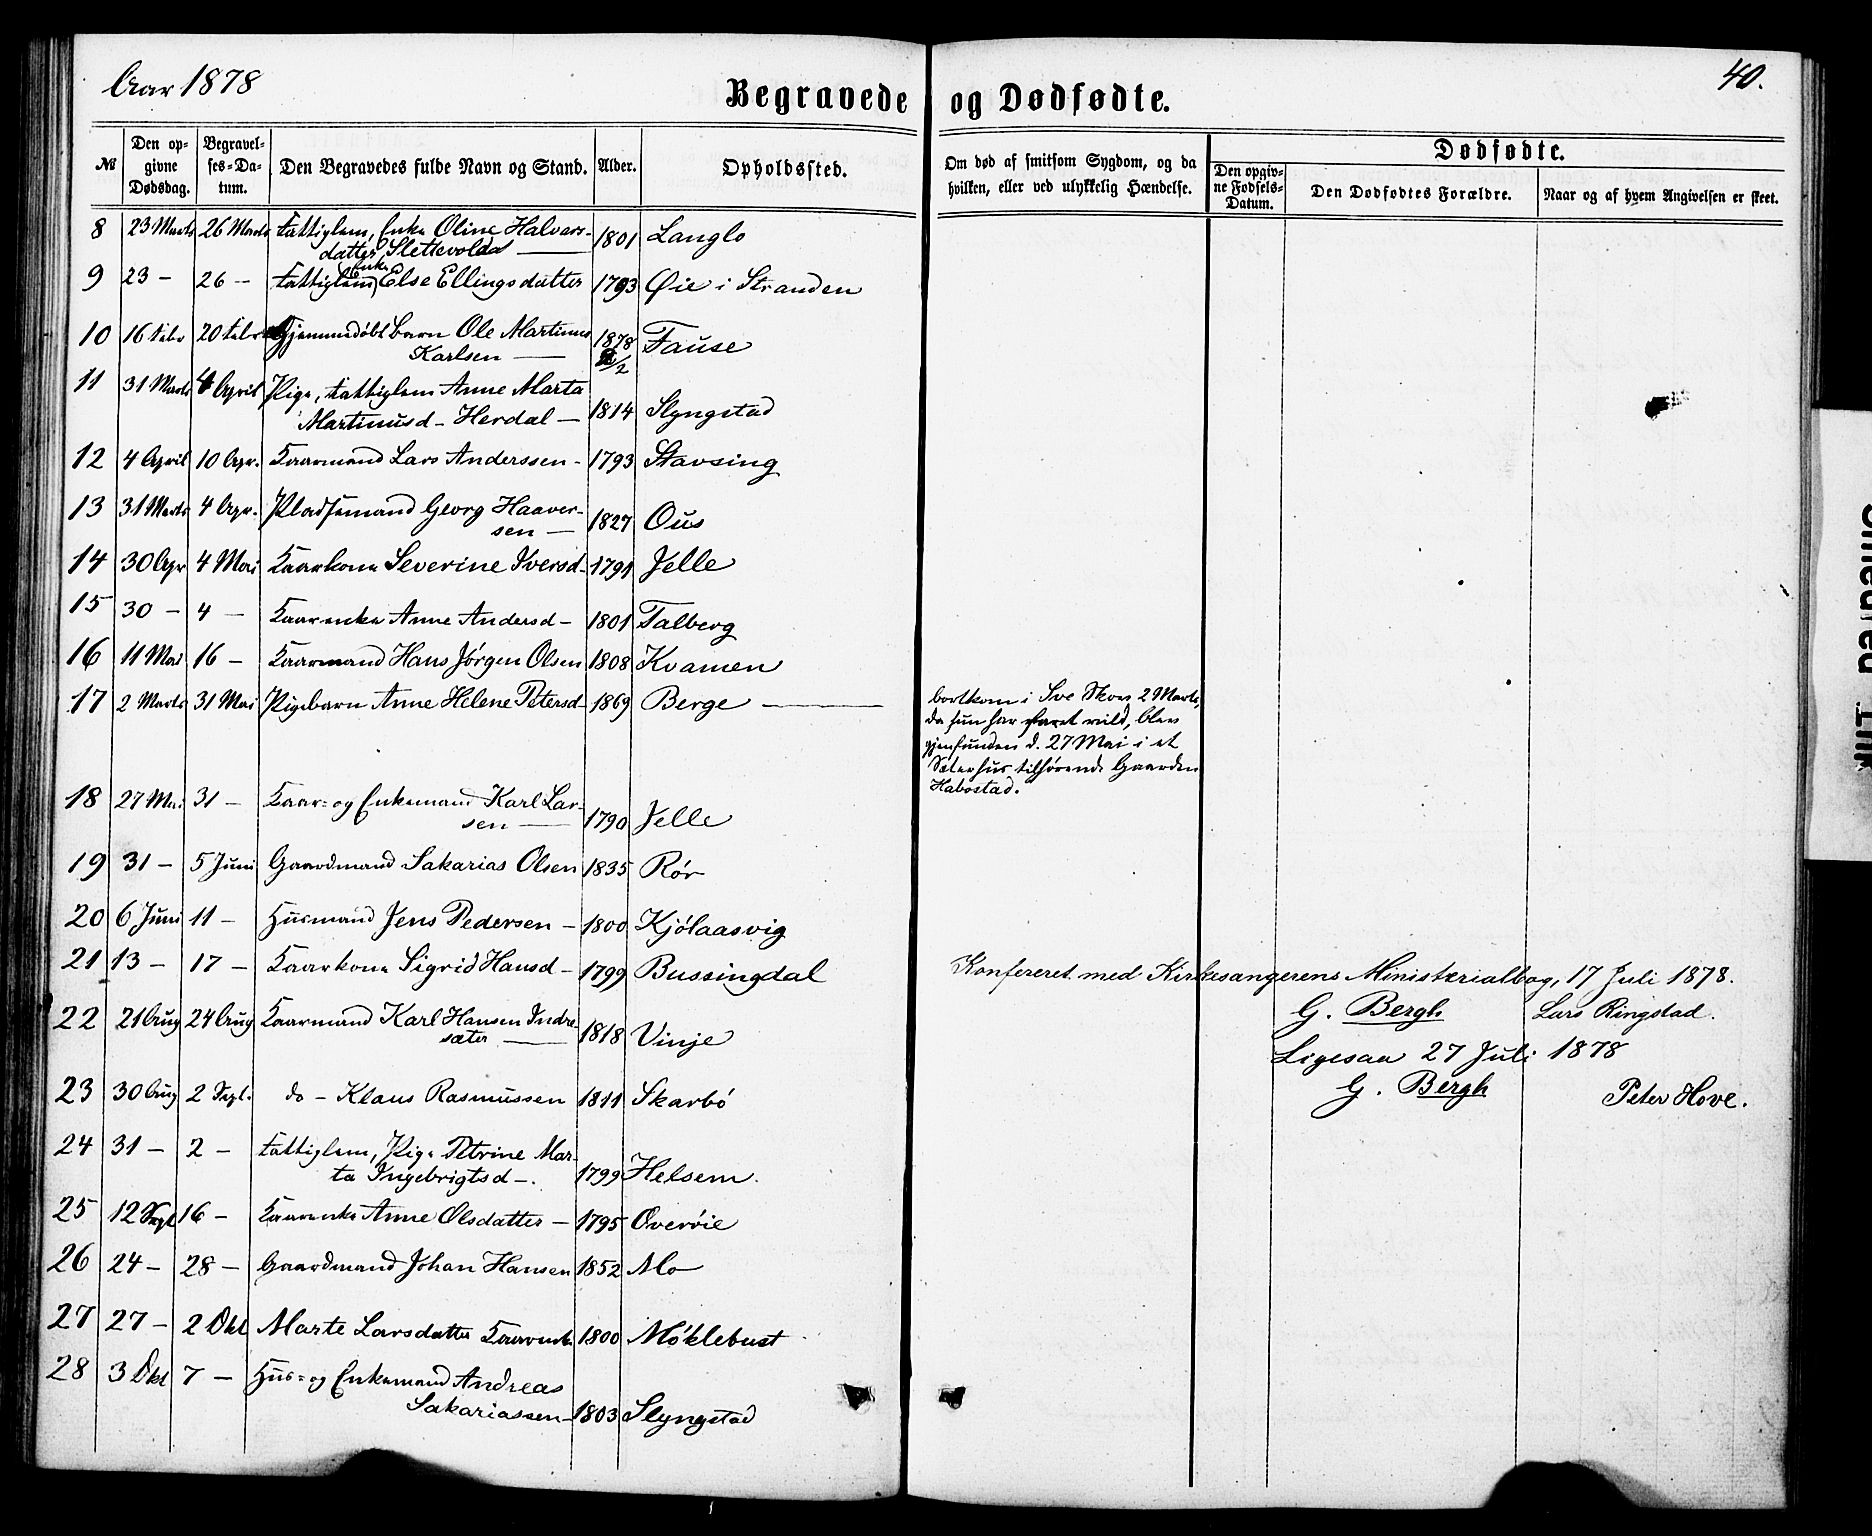 Aar 1878
Begravede og Dødfødte.
40.
№
Den op-
givne
Dødsdag.
Begravel-
ses-Da-
tum.
Den Begravedes fulde Navn og Stand.
Alder.
Opholdssted.
Om død af smitsom Sygdom, og da
hvilken, eller ved ulykkelig Hændelse.
Dødfødte.
Den opgiv-
ne Fødsels-
Datum.
Den Dødfødtes Forældre.
Naar og af hvem Angivelsen er skeet.
8 23 Marts 26 Marts Fattiglem, Enke Oline Halvors-
datter Slettevold — 1801 Langlo
Enke
9 23 — 26 — Fattiglem Else Ellingsdatter 1793 Øie i Stranden
10 16 Febr 20 Febr Hjemmedøbt Barn Ole Martinus 1878
Karlsen — /2 Fause
11 31 Marts 4 April Pige, Fattiglem Anne Marta
Martinusd - Herdal — 1814 Slyngstad
12 4 April 10 Apr. Kaarmand Lars Anderssen - 1793 Stavsing
13 31 Marts 4 Apr. Pladsemand Georg Haaver-
sen — 1827 Ous
14 30 Apr 4 Mai Kaarkone Severine Iversd - 1791 Jelle
15 30 — 4 — Kaarenke Anne Andersd — 1801 Talberg
16 11 Mai 16 — Kaarmand Hans Jørgen Olsen 1808 Kvamen
17 2 Marts 31 Mai Pigebarn Anne Helene Petersd - 1869 Berge —
bortkom i Sve Skov 2 Marts,
da hun har faret vild, blev
gjenfunden d. 27 Mai i et
Sæterhus tilhørende Gaarden
Habostad.
18 27 Mai 31 — Kaar- og Enkemand Karl Lar-
sen — 1790 Jelle
19 31 — 5 Juni Gaardmand Sakarias Olsen 1835 Rør
20 6 Juni 11 — Husmand Jens Pedersen — 1800 Kjølaasvig
21 13 — 17 — Kaarkone Sigrid Hansd — 1799 Bussingdal
Konfereret med Kirkesangerens Ministerialbog, 17 Juli 1878.
G. Bergh Lars Ringstad.
22 21 Aug 24 Aug Kaarmand Karl Hansen Indre-
sæter — 1818 Vinje
Ligesaa 27 Juli 1878
G. Bergh Peter Hove.
23 30 Aug 2 Sept. do — Klaus Rasmussen 1811 Skarbø
24 31 — 2 — Fattiglem, Pige Petrine Mar-
ta Ingebrigtsd —. 1799 Helsem.
25 12 Sept 16 — Kaarenke Anne Olsdatter — 1795 Overøie
26 24 — 28 — Gaardmand Johan Hansen 1852 Mo
27 27 — 2 Okt Marte Larsdatter Kaarenke 1800 Møklebust
28 3 Okt 7 — Hus- og Enkemand Andreas
Sakariassen — 1803 Slyngstad